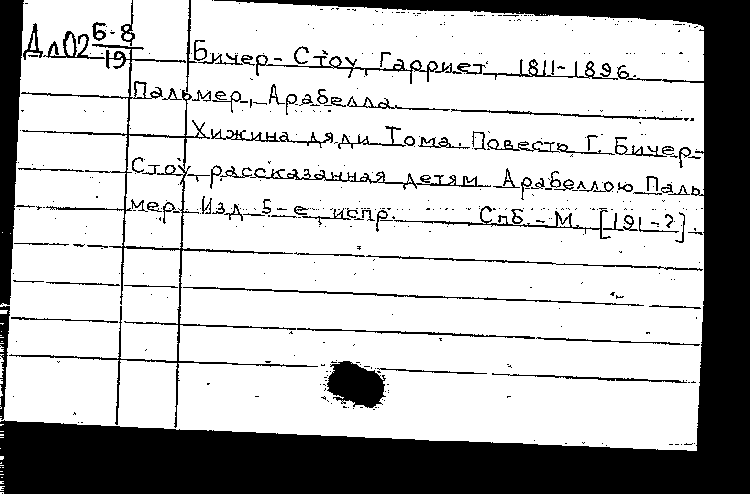 Дл02 Б-8/19
Бичер-Стоу, Гарриет, 1811-1896.
Пальмер, Арабелла.
Хижина дяди Тома. Повесть Г. Бичер-
Стоу, рассказанная детям Арабеллою Паль
мер. Изд 5-е, испр. Спб.-М., [191-?].